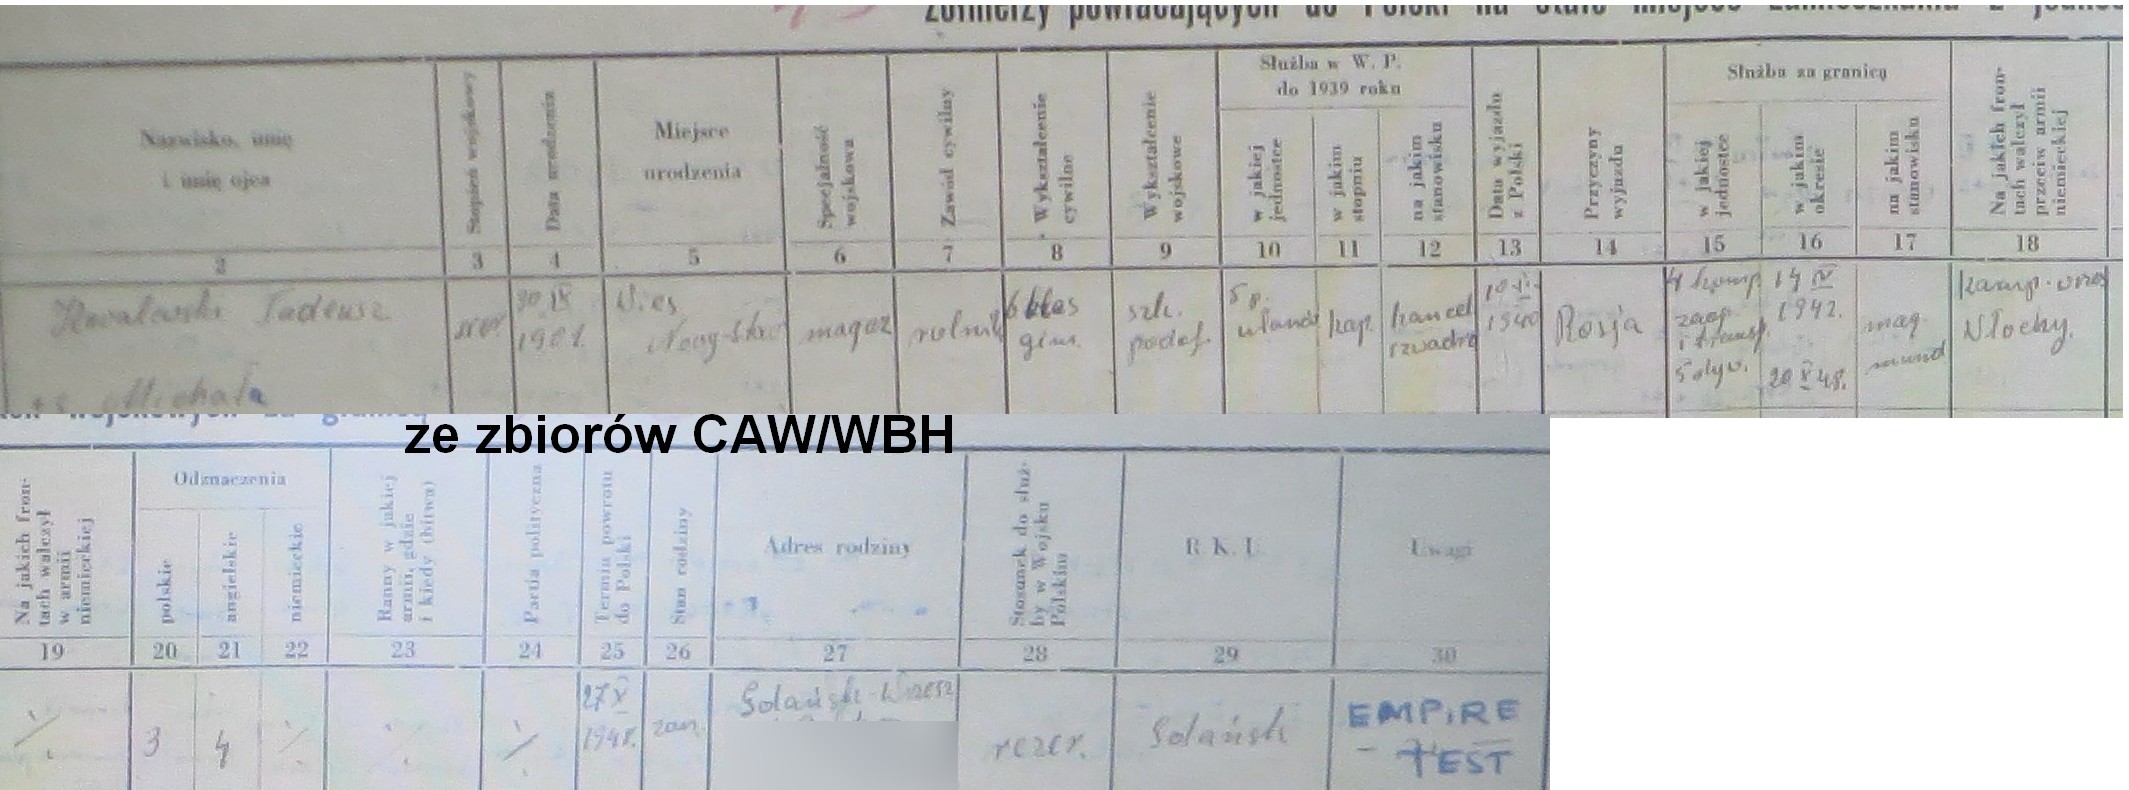 żołnierzy powracających do Polski na stałe miejsce zamieszkania z
Nazwisko, imię
i imię ojca
Stopień wojskowy
Data urodzenia
Miejsce
urodzenia
Specjalność
wojskowa
Zawód cywilny
Wykształcenie
cywilne
Wykształcenie
wojskowe
Służba w W. P.
do 1939 roku
w jakiej
jednostce
w jakim
stopniu
na jakim
stanowisku
Data wyjazdu
z Polski
Przyczyny
wyjazdu
Służba za granicą
w jakiej
jednostce
w jakim
okresie
na jakim
stanowisku
Na jakich fron-
tach walczył
przeciw armii
niemieckiej
2 3 4 5 6 7 8 9 10 11 12 13 14 15 16 17 18
Kowalewski Tadeusz
s. Michała
30 IX
1901.
Wieś
magaz
rolnik
6 klas
gimn.
szk.
podof.
5 p.
ułanów
kap.
kancel
szwadro
1940
Rosja
4 komp
zaop.
i transp.
5 dyw.
14 IV
1942.
20 X 48.
mag.
mund
kamp.
Włochy.
wojskowych za granicą
ze zbiorów CAW/WBH
Na jakich fron-
tach walczył
w armii
niemieckiej
Odznaczenia
polskie
angielskie
niemieckie
Ranny w jakiej
armii, gdzie
i kiedy (bitwa)
Partia polityczna
Termin powrotu
do Polski
Stan rodziny
Adres rodziny
Stosunek do służ-
by w Wojsku
Polskim
R. K. U.
Uwagi
19 20 21 22 23 24 25 26 27 28 29 30
./.
3
4
./.
./.
./.
27 X
1948.
żon.
Gdańsk-Wrzesz
rezer.
Gdańsk
EMPIRE
- TEST